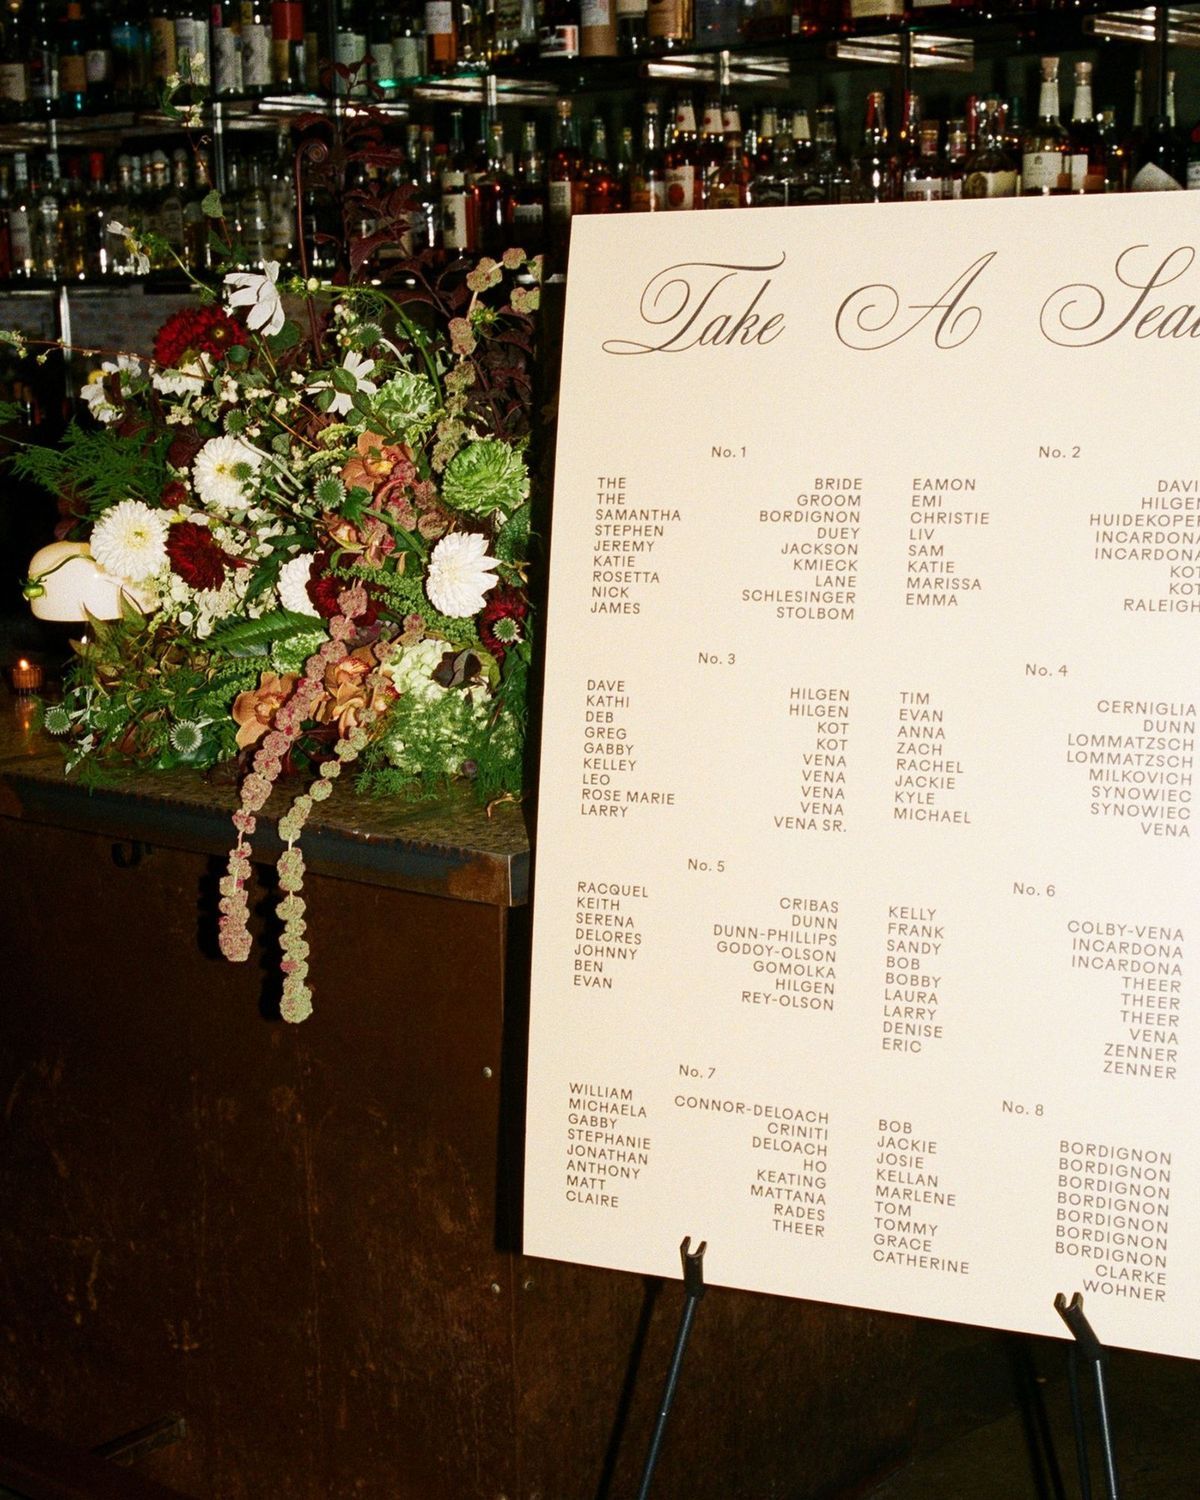 Take A Sea
No. 1
THE BRIDE
THE GROOM
SAMANTHA BORDIGNON
STEPHEN DUEY
JEREMY JACKSON
KATIE KMIECK
ROSETTA LANE
NICK SCHLESINGER
JAMES STOLBOM
No. 2
EAMON DAVI
EMI HILGEN
CHRISTIE HUIDEKOPER
LIV INCARDONA
SAM INCARDONA
KATIE KOT
MARISSA KOT
EMMA RALEIGH
No. 3
DAVE HILGEN
KATHI HILGEN
DEB KOT
GREG KOT
GABBY VENA
KELLEY VENA
LEO VENA
ROSE MARIE VENA
LARRY VENA SR.
No. 4
TIM CERNIGLIA
EVAN DUNN
ANNA LOMMATZSCH
ZACH LOMMATZSCH
RACHEL MILKOVICH
JACKIE SYNOWIEC
KYLE SYNOWIEC
MICHAEL VENA
No. 5
RACQUEL CRIBAS
KEITH DUNN
SERENA DUNN-PHILLIPS
DELORES GODOY-OLSON
JOHNNY GOMOLKA
BEN HILGEN
EVAN REY-OLSON
No. 6
KELLY COLBY-VENA
FRANK INCARDONA
SANDY INCARDONA
BOB THEER
BOBBY THEER
LAURA THEER
LARRY VENA
DENISE ZENNER
ERIC ZENNER
No. 7
WILLIAM CONNOR-DELOACH
MICHAELA CRINITI
GABBY DELOACH
STEPHANIE HO
JONATHAN KEATING
ANTHONY MATTANA
MATT RADES
CLAIRE THEER
No. 8
BOB BORDIGNON
JACKIE BORDIGNON
JOSIE BORDIGNON
KELLAN BORDIGNON
MARLENE BORDIGNON
TOM BORDIGNON
TOMMY BORDIGNON
GRACE CLARKE
CATHERINE WOHNER